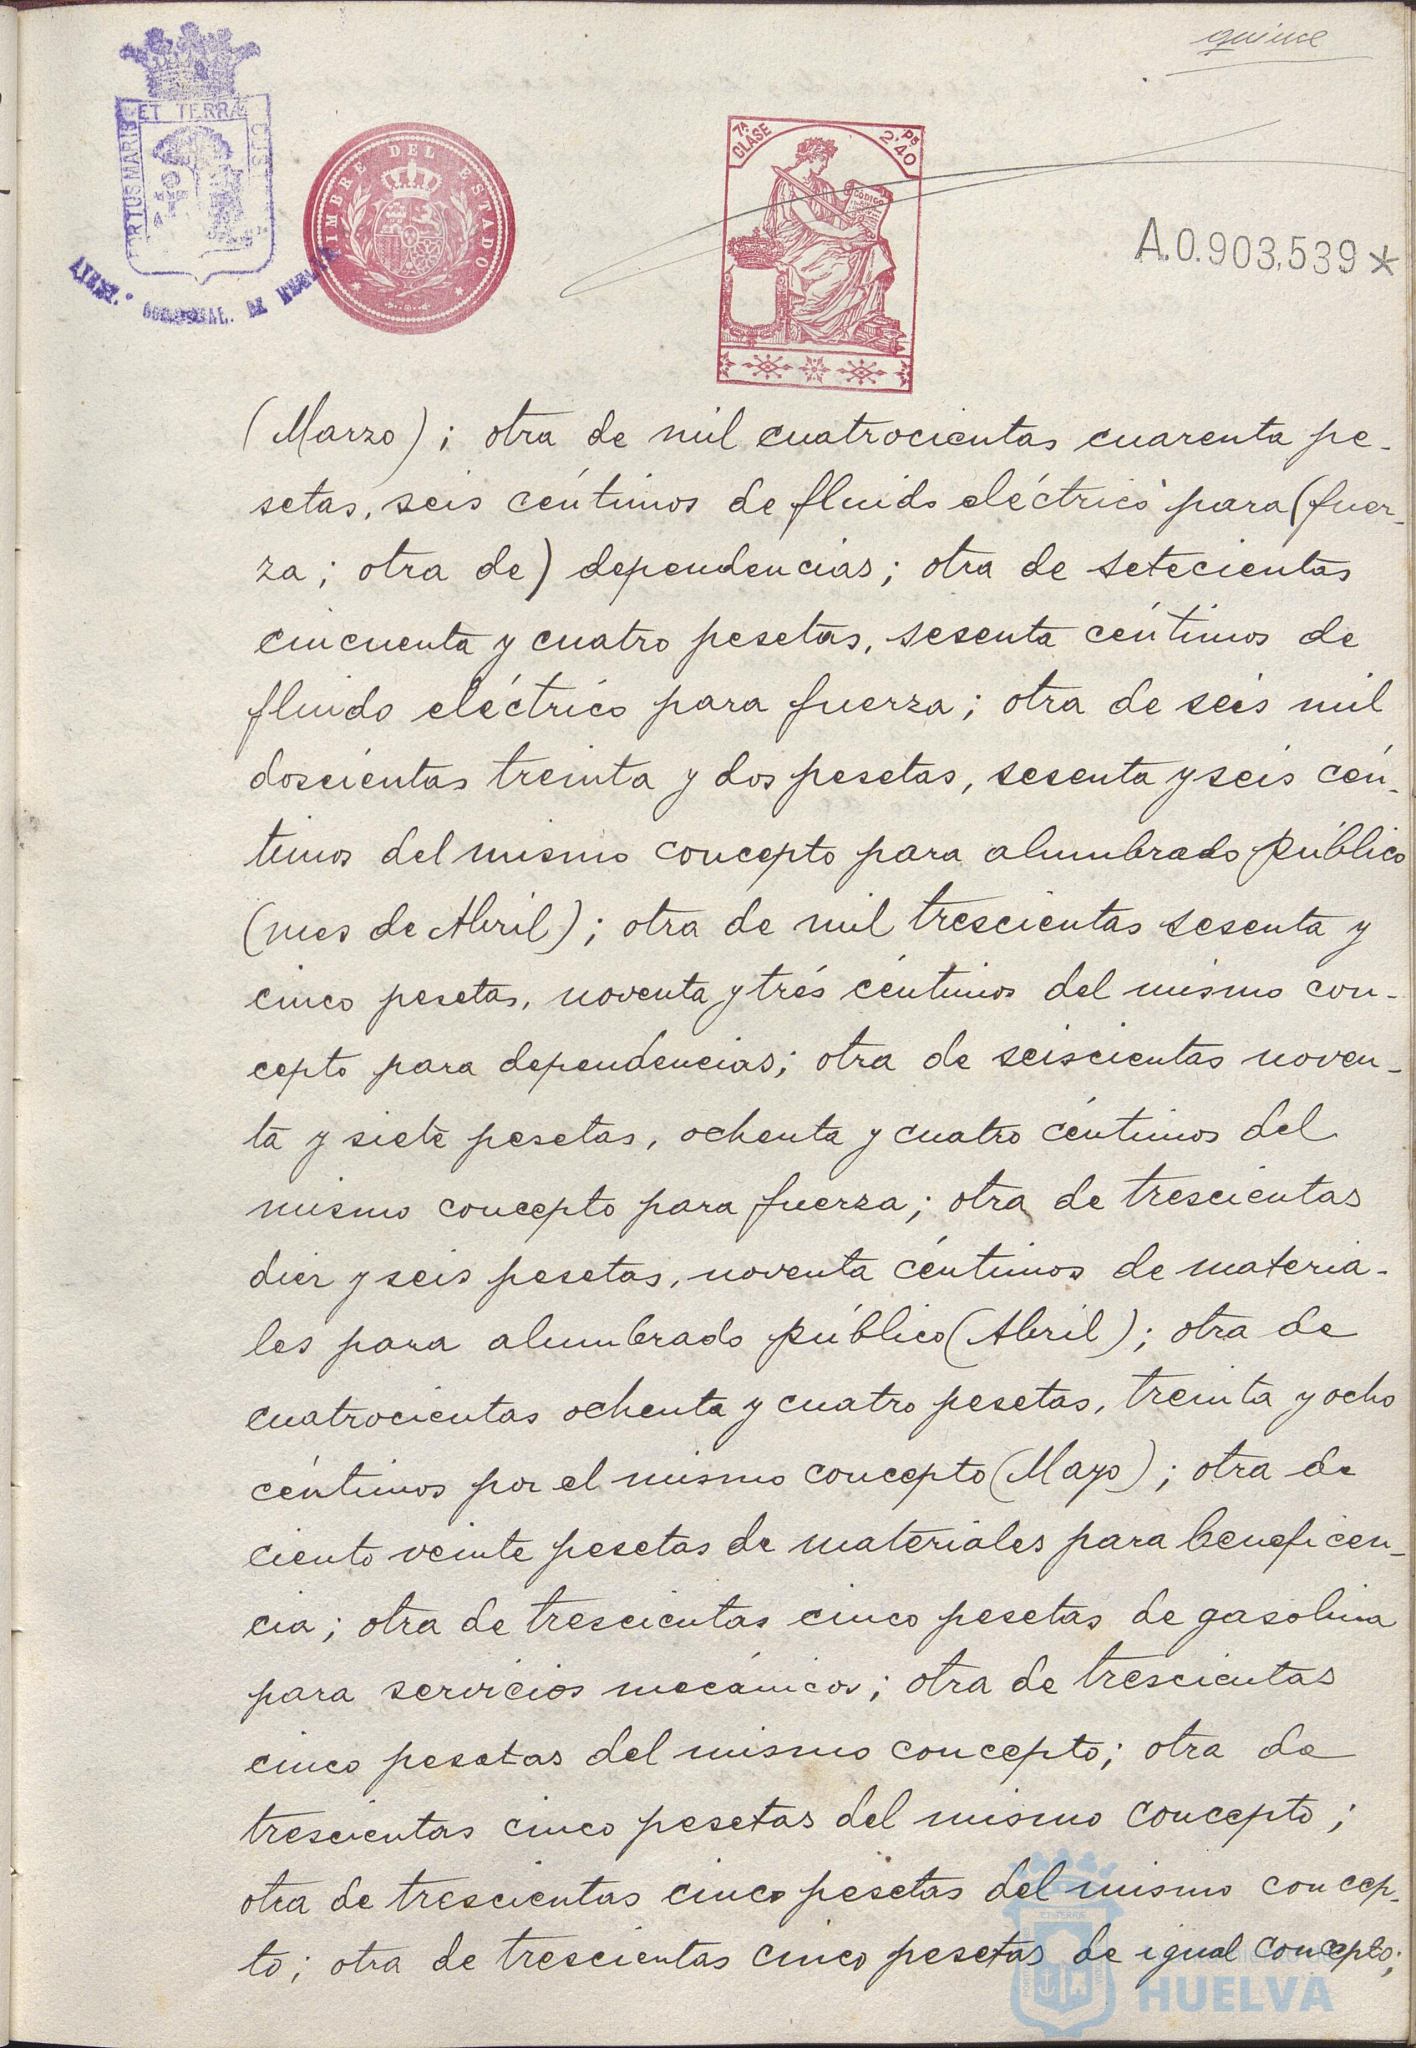 quince
ET TERRÆ
PORTUS MARIS
CUS
TIMBRE DEL ESTADO
7ª CLASE
2'40 Ps
CÓDIGO
A.0.903,539*
AYUNT.º CONSTITUCIONAL. DE HUELVA
(Marzo); otra de mil cuatrocientas cuarenta pe-
setas, seis céntimos de fluido eléctrico para (fuer-
za; otra de) dependencias; otra de setecientas
cincuenta y cuatro pesetas, sesenta céntimos de
fluido eléctrico para fuerza; otra de seis mil
doscientas treinta y dos pesetas, sesenta y seis cén-
timos del mismo concepto para alumbrado público
(mes de Abril); otra de mil trescientas sesenta y
cinco pesetas, noventa y trés céntimos del mismo con-
cepto para dependencias; otra de seiscientas noven-
ta y siete pesetas, ochenta y cuatro céntimos del
mismo concepto para fuerza; otra de trescientas
diez y seis pesetas, noventa céntimos de materia-
les para alumbrado público (Abril); otra de
cuatrocientas ochenta y cuatro pesetas, treinta y ocho
céntimos por el mismo concepto (Mayo); otra de
ciento veinte pesetas de materiales para beneficen-
cia; otra de trescientas cinco pesetas de gasolina
para servicios mecánicos; otra de trescientas
cinco pesetas del mismo concepto; otra de
trescientas cinco pesetas del mismo concepto;
otra de trescientas cinco pesetas del mismo concep-
to; otra de trescientas cinco pesetas de igual concepto;
HUELVA